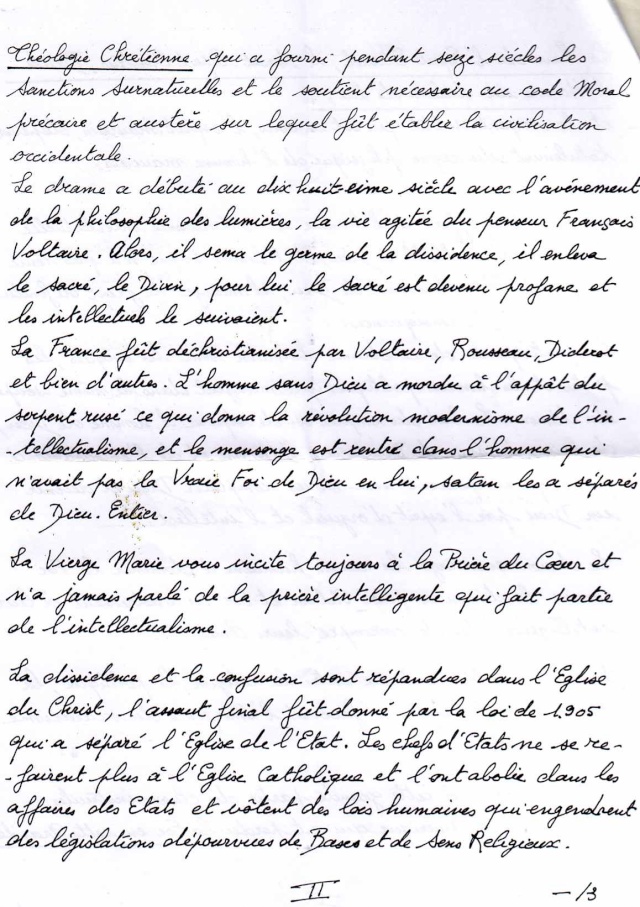 Théologie Chrétienne qui a fourni pendant seize siécles les
sanctions surnaturelles et le soutient nécessaire au code Moral
précaire et austère sur lequel fût établer la civilisation
occidentale.
Le drame a débuté au dix huit-eime siècle avec l'avénement
de la philosophie des lumières, la vie agitée du penseur François
Voltaire. Alors, il sema le germe de la dissidence, il enleva
le sacré, le Divin, pour lui le sacré est devenu profane et
les intellectuels le suivaient.
La France fût déchristianisée par Voltaire, Rousseau, Diderot
et bien d'autres. L'homme sans Dieu a mordu à l'appât du
serpent rusé ce qui donna la révolution modernisme de l'in-
-tellectualisme, et le mensonge est rentré dans l'homme qui
n'avait pas la Vraie Foi de Dieu en lui, satan les a séparés
de Dieu. Entier.
La Vierge Marie vous incite toujours à la Prière du Cœur et
n'a jamais parlé de la prière intelligente qui fait partie
de l'intellectualisme.
La dissidence et la confusion sont répandues dans l'Eglise
du Christ, l'assaut final fût donné par la loi de 1.905
qui a séparé l'Eglise de l'Etat. Les chefs d'Etats ne se re-
-fairent plus à l'Eglise Catholique et l'ont abolie dans les
affaires des Etats et vôtent des lois humaines qui engendrent
des législations dépourvues de Bases et de sens Religieux.
II -/3